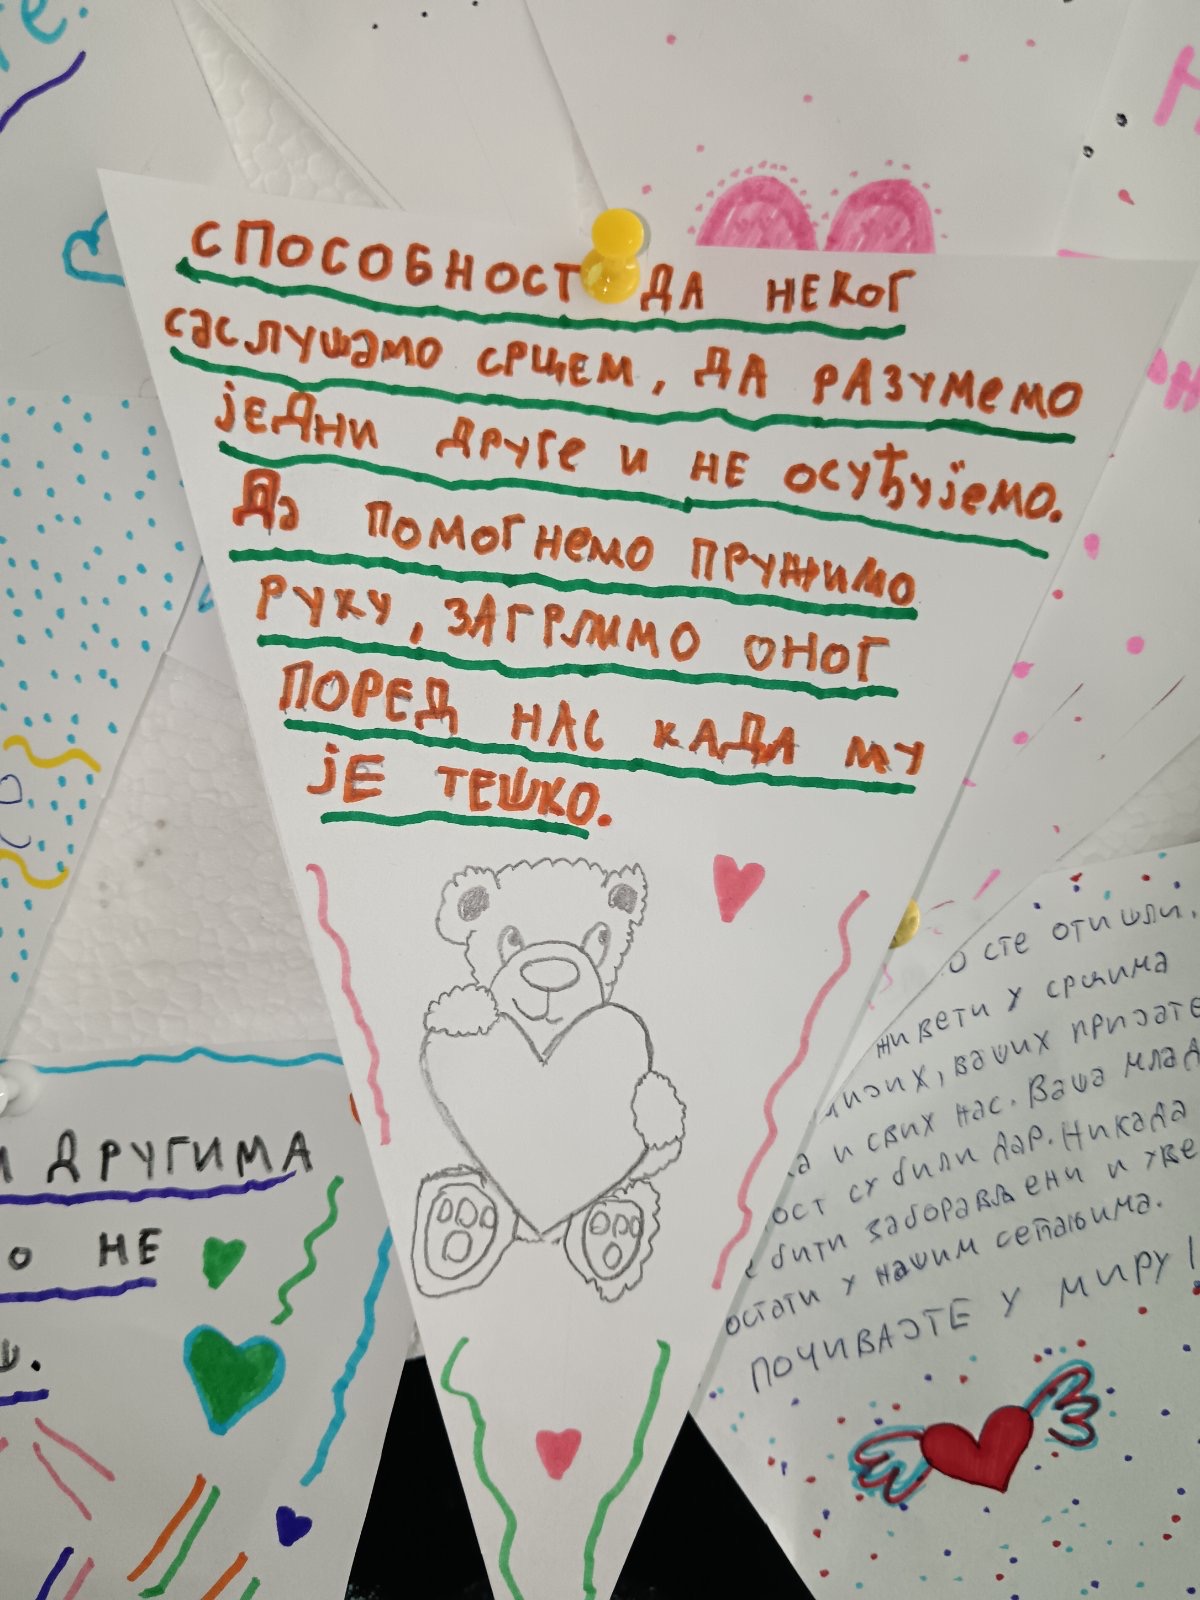 СПОСОБНОСТ ДА НЕКОГ
САСЛУШАМО СРЦЕМ, ДА РАЗУМЕМО
ЈЕДНИ ДРУГЕ И НЕ ОСУЂУЈЕМО.
Да ПОМОГНЕМО ПРУЖИМО
РУКУ, ЗАГРЛИМО ОНОГ
ПОРЕД НАС КАДА МУ
ЈЕ ТЕШКО.
ДРУГИМА
НЕ
сте отишли.
живети у срцима
ваших
и свих нас. Ваша
су били дар. Никада
бити заборављени и
остати у нашим сетањима.
ПОЧИВАЈТЕ У МИРУ!